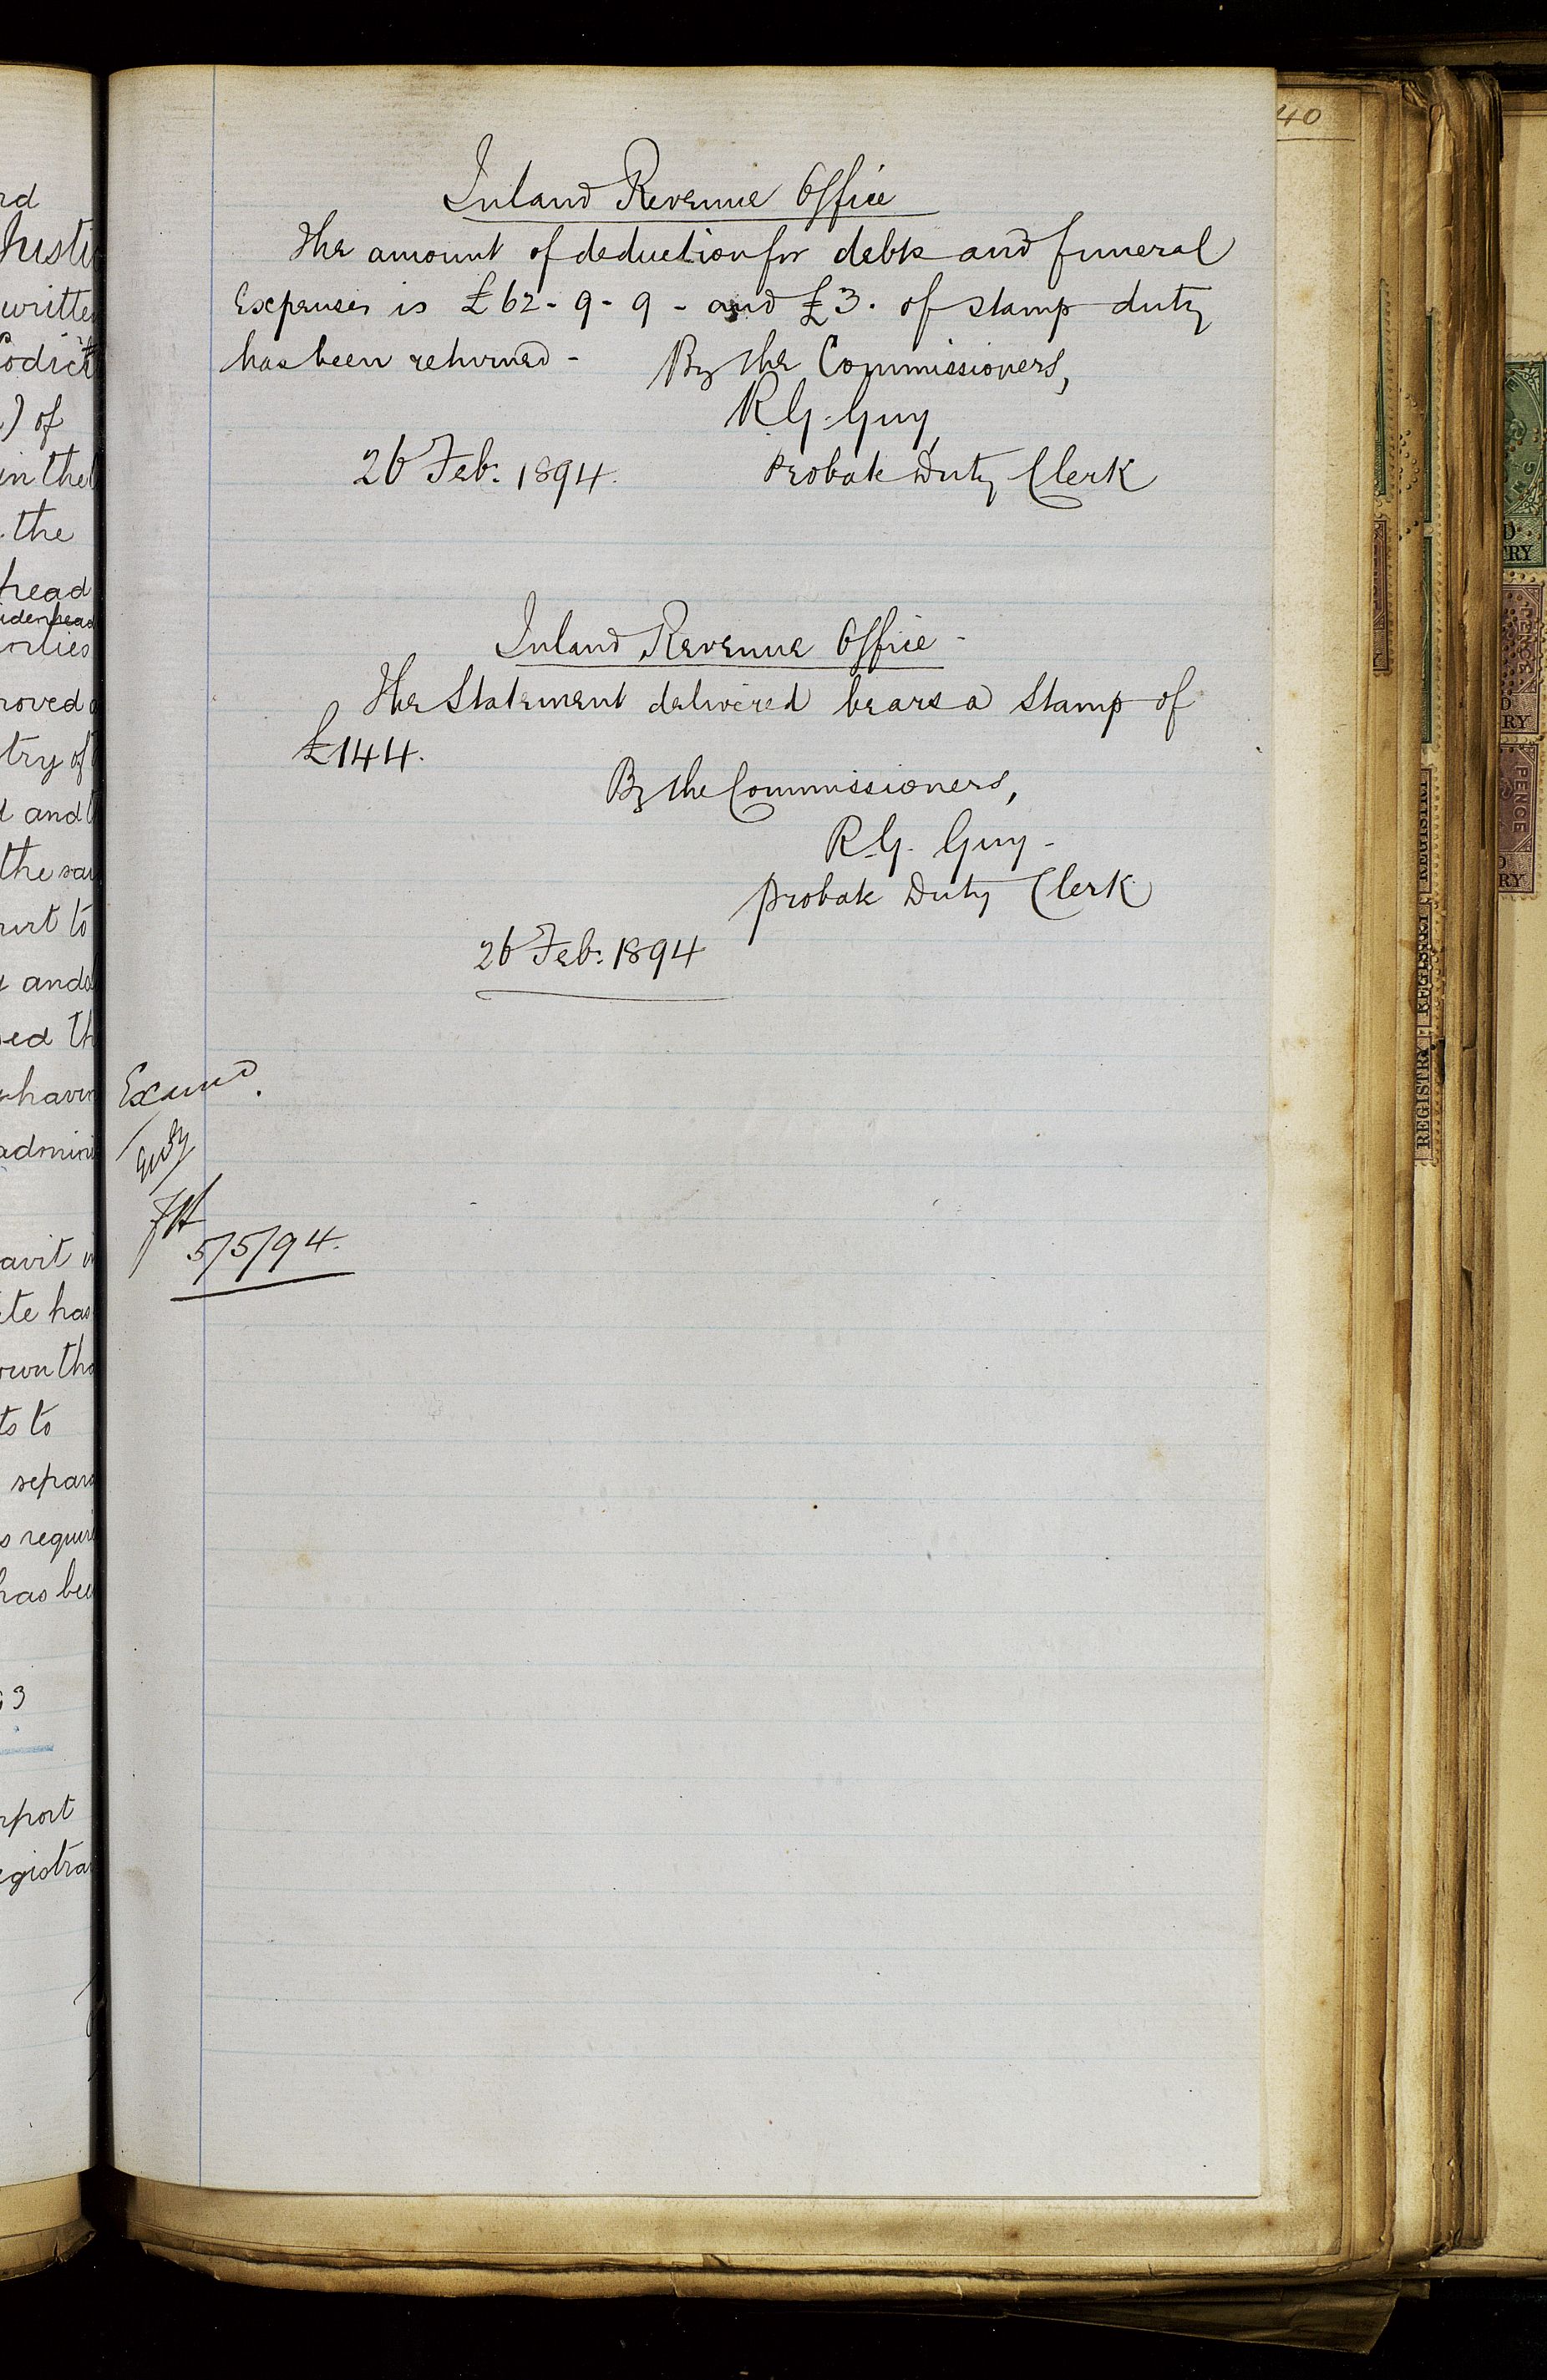 Inland Revenue Office
The amount of deduction for debts and funeral
Expenses is £62-9-9- and £3. of stamp duty
has been returned - By the Commissioners,
R.G. Guy,
26 Feb: 1894. Probate Duty Clerk
Inland Revenue Office -
The Statement delivered bears a Stamp of
£144.
By the Commissioners,
R.G. Guy -
Probate Duty Clerk
26 Feb: 1894
Examd.
5/5/94.
40
rd
written
) of
in the
the
head
oved
try of
and
the
to
and
ed th
havin
admini
avit
te has
own tha
ts to
separa
requir
has bee
3
port
egistra
RY
PENCE
RY
PENCE
RY
REGISTRY
REGISTRY
REGISTRY